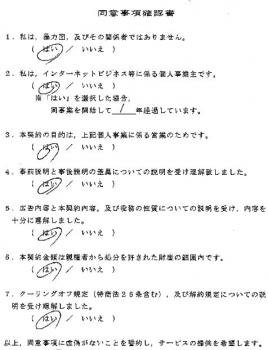 同意事項確認書
1．私は、暴力団、及びその関係者ではありません。
（ はい ／ いいえ ）
2．私は、インターネットビジネス等に係る個人事業主です。
（ はい ／ いいえ ）
※「はい」を選択した場合、
同事業を開始して 1 年経過しています。
3．本契約の目的は、上記個人事業に係る営業のためです。
（ はい ／ いいえ ）
4．事前説明と事後説明の差異についての説明を受け理解致しました。
（ はい ／ いいえ ）
5．広告内容と本契約内容、及び役務の性質についての説明を受け、内容を
十分に理解しました。
（ はい ／ いいえ ）
6．本契約金額は親権者から処分を許された財産の範囲内です。
（ はい ／ いいえ ）
7．クーリングオフ規定（特商法26条含む）、及び解約規定についての説
明を受け理解しました。
（ はい ／ いいえ ）
以上、同意事項に虚偽がないことを誓約し、サービスの提供を希望します。